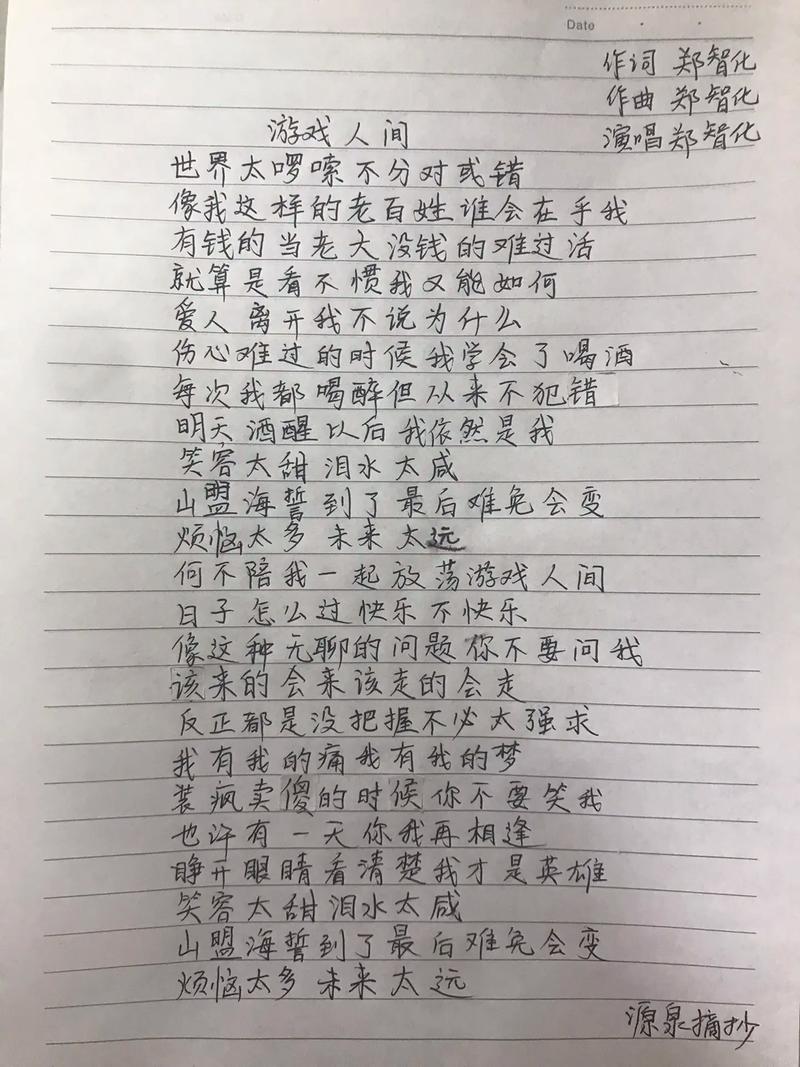 Date
作词 郑智化
作曲 郑智化
演唱郑智化
游戏人间
世界太啰嗦不分对或错
像我这样的老百姓谁会在乎我
有钱的当老大没钱的难过活
就算是看不惯我又能如何
爱人离开我不说为什么
伤心难过的时候我学会了喝酒
每次我都喝醉但从来不犯错
明天酒醒以后我依然是我
笑容太甜泪水太咸
山盟海誓到了最后难免会变
烦恼太多未来太远
何不陪我一起放荡游戏人间
日子怎么过快乐不快乐
像这种无聊的问题你不要问我
该来的会来该走的会走
反正都是没把握不必太强求
我有我的痛我有我的梦
装疯卖傻的时候你不要笑我
也许有一天你我再相逢
睁开眼睛看清楚我才是英雄
笑容太甜泪水太咸
山盟海誓到了最后难免会变
烦恼太多未来太远
源泉摘抄